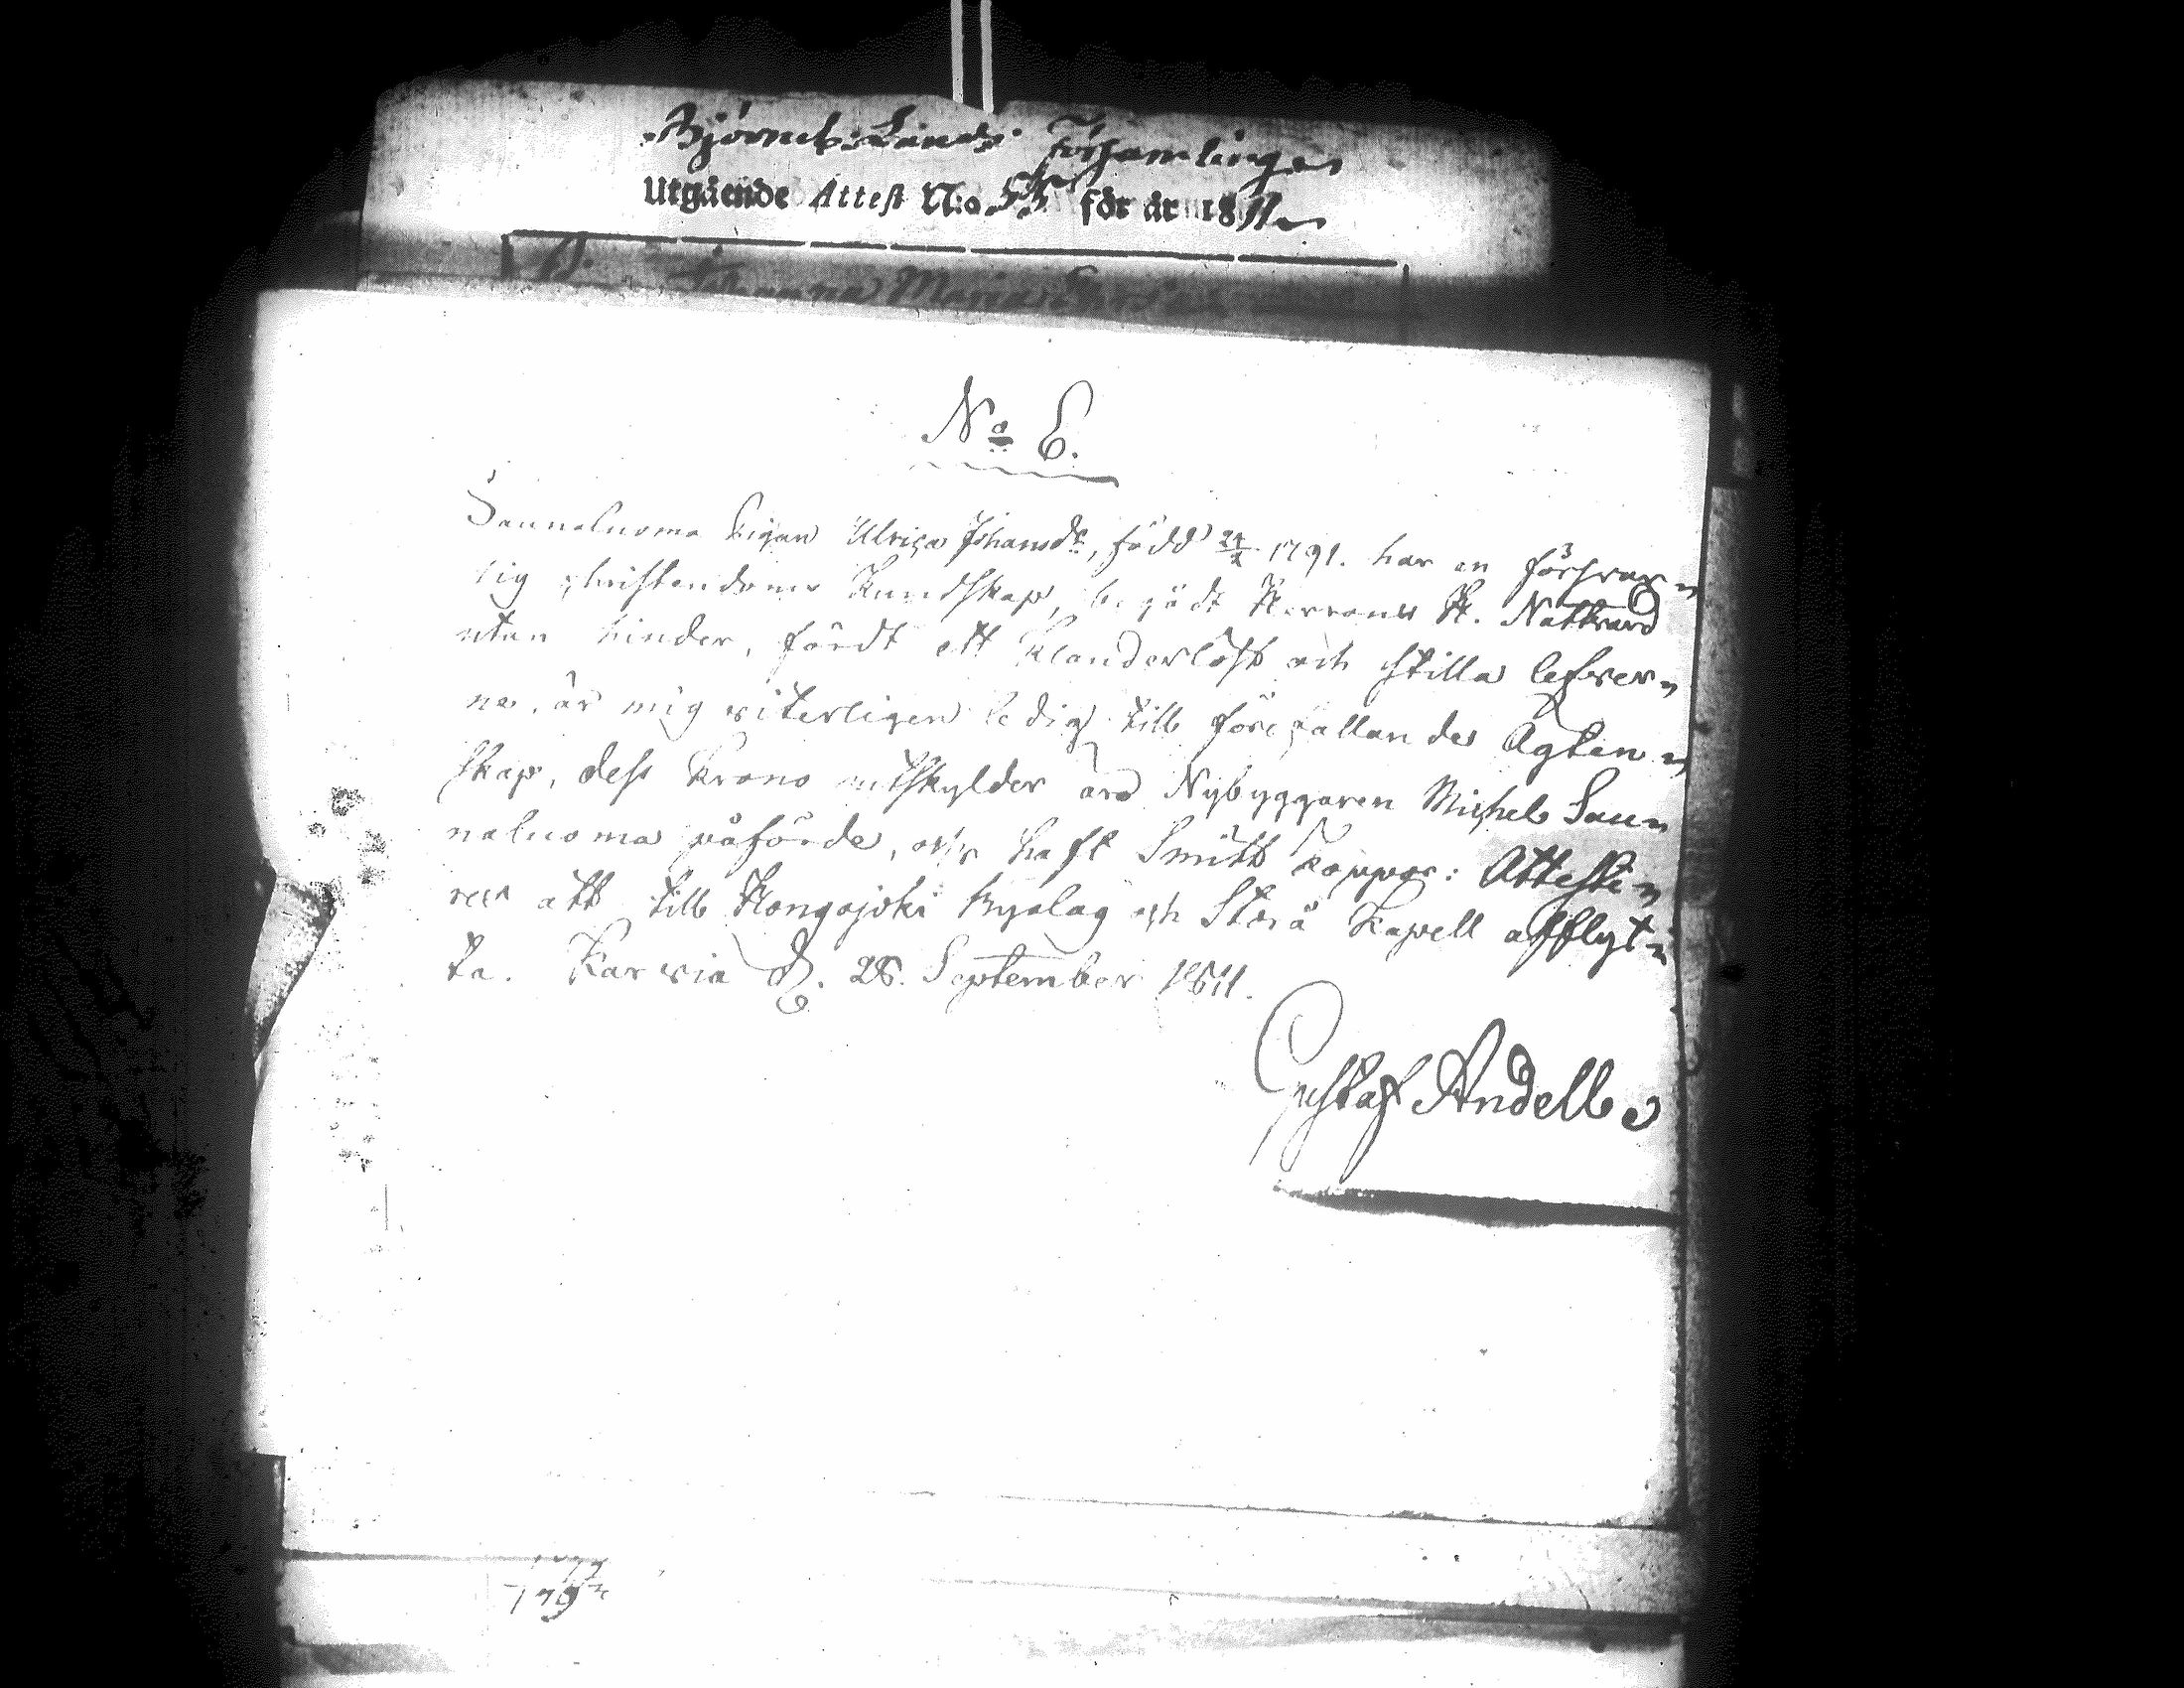 Björneb: Lands Församlinge
Utgående Attest N:o 55 för år 1811
Johanna Maria
No 6.
Saunaluoma Pigan Ulrica Johansdr, född 24/2 1791. har en försvar=
lig christendoms Kundskap, begådt Herrans H. Nattvard
utan hinder, fördt ett klanderlöst och stilla lefver=
ne, är mig viterligen ledig till förefallande Ägten=
skap, dess Krono utskylder äro Nybyggaren Michel Sau=
naluoma påförde, och haft Smitt koppor: Atteste=
ras att till Hongojoki Byalag och Storå Kapell afflyt=
ta. Karvia d. 28. September 1811.
Gustaf Andell